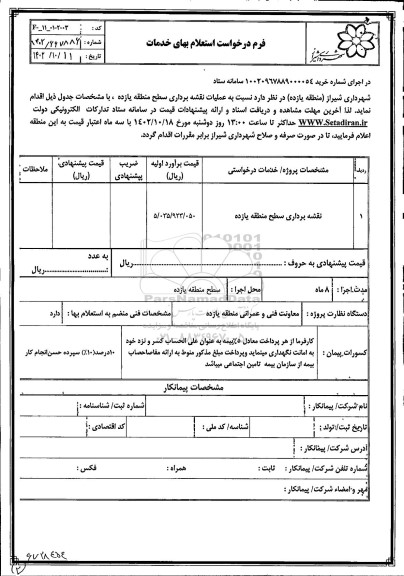 فرم درخواست استعلام بهای خدمات
کد :
شماره :
تاریخ : ۱۴۰۲/۱۰/۱۱
شهرداری شیراز
در اجرای شماره خرید ۱۰۰۲۰۹۶۷۸۸۹۰۰۰۰۵۴ سامانه ستاد
شهرداری شیراز (منطقه یازده) در نظر دارد نسبت به عملیات نقشه برداری سطح منطقه یازده ، با مشخصات جدول ذیل اقدام
نماید. لذا آخرین مهلت مشاهده و دریافت اسناد و ارائه پیشنهادات قیمت در سامانه ستاد تدارکات الکترونیکی دولت
WWW.Setadiran.ir حداکثر تا ساعت ۱۳:۰۰ روز دوشنبه مورخ ۱۴۰۲/۱۰/۱۸ با سه ماه اعتبار قیمت به این منطقه
اعلام فرمایید، تا در صورت صرفه و صلاح شهرداری شیراز برابر مقررات اقدام گردد.
ردیف
مشخصات پروژه/ خدمات درخواستی
قیمت برآورد اولیه (ریال)
ضریب پیشنهادی
قیمت پیشنهادی (ریال)
ملاحظات
۱
نقشه برداری سطح منطقه یازده
۵/۰۳۵/۹۲۳/۰۵۰
قیمت پیشنهادی به حروف : ....................ریال
به عدد :....................ریال
مدت اجرا : ۸ ماه
محل اجرا : سطح منطقه یازده
دستگاه نظارت پروژه : معاونت فنی و عمرانی منطقه یازده
مشخصات فنی منضم به استعلام بها : دارد
کسورات پیمان :
کارفرما از هر پرداخت معادل ۵٪ بیمه به عنوان علی الحساب کسر و نزد خود
به امانت نگهداری مینماید و پرداخت مبلغ مذکور منوط به ارائه مفاصاحساب
بیمه از سازمان بیمه تامین اجتماعی میباشد
۱۰درصد(۱۰٪) سپرده حسن انجام کار
مشخصات پیمانکار
نام شرکت/ پیمانکار :
شماره ثبت/ شناسنامه :
تاریخ ثبت/تولد :
شناسه/ کد ملی :
کد اقتصادی :
آدرس شرکت/ پیمانکار :
شماره تلفن شرکت/ پیمانکار :
ثابت :
همراه :
فکس :
مهر و امضاء شرکت/ پیمانکار :